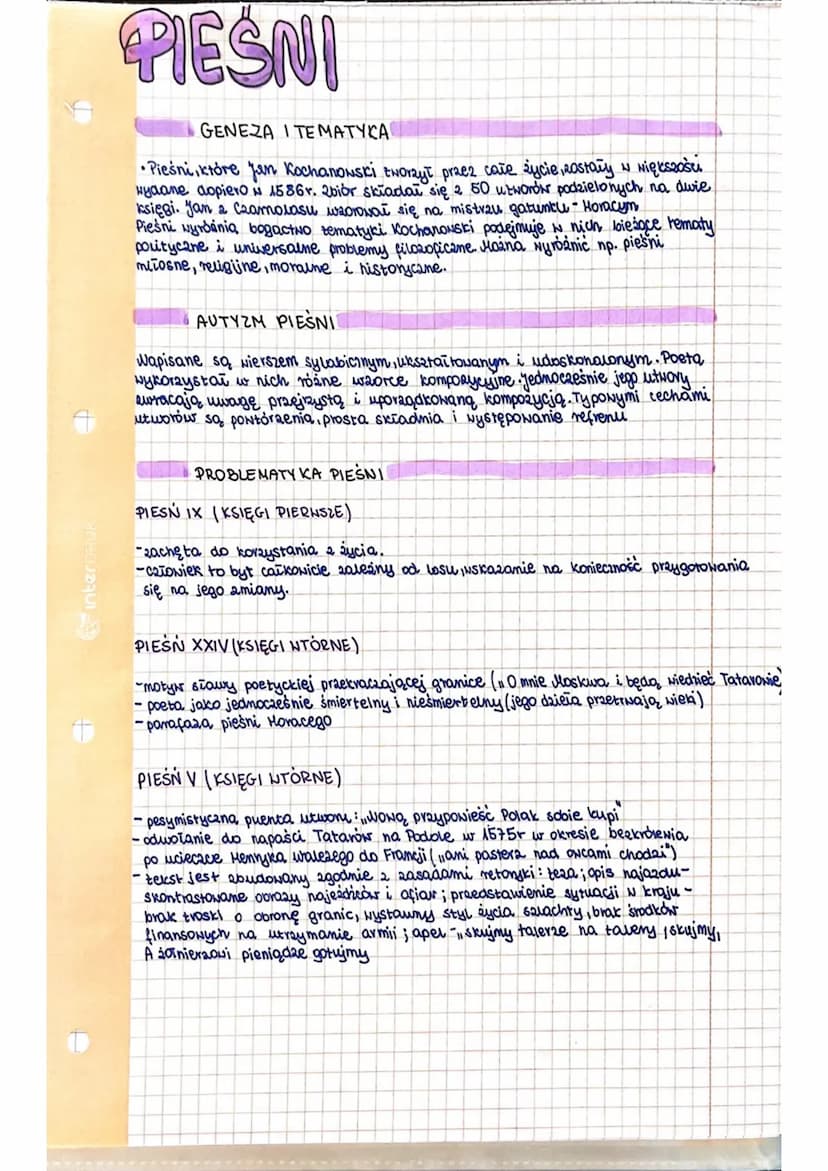 PIEŚNI
GENEZA I TEMATYKA
• Pieśni, które Jan Kochanowski tworzył przez całe życie, zostały w większości
wydane dopiero w 1586r. Zbiór składał się z 50 utworów podzielonych na dwie
księgi. Jan z Czarnolasu wzorował się na mistrzu gatunku - Horacym
Pieśni wyróżnia bogactwo tematyki Kochanowski podejmuje w nich bieżące tematy
polityczne i uniwersalne problemy filozoficzne. Można wyróżnić np. pieśni
miłosne, religijne, moralne i historyczne.
AUTYZM PIEŚNI
Napisane są wierszem sylabicznym, ukształtowanym i udoskonalonym. Poeta
wykorzystał w nich różne wzorce kompozycyjne. Jednocześnie jego utwory
zwracają uwagę przejrzystą i uporządkowaną kompozycją. Typowymi cechami
utworów są powtórzenia, prosta składnia i występowanie refrenu
PROBLEMATYKA PIEŚNI
PIEŚŃ IX (KSIĘGI PIERWSZE)
- zachęta do korzystania z życia.
- człowiek to byt całkowicie zależny od losu, wskazanie na konieczność przygotowania
się na jego zmiany.
PIEŚŃ XXIV (KSIĘGI WTÓRNE)
- motyw sławy poetyckiej przekraczającej granice („O mnie Moskwa i będą wiedzieć Tatarowie)
- poeta jako jednocześnie śmiertelny i nieśmiertelny (jego dzieła przetrwają wieki)
- parafaza pieśni Horacego
PIEŚŃ V (KSIĘGI WTÓRNE)
- pesymistyczna puenta utworu: „Nową przypowieść Polak sobie kupi"
- odwołanie do napaści Tatarów na Podole w 1575r w okresie bezkrólewia
po ucieczce Henryka Walezego do Francji („ani pasterz nad owcami chodzi")
- tekst jest zbudowany zgodnie z zasadami retoryki: teza; opis najazdu-
skontrastowane obrazy najeźdźców i ofiar; przedstawienie sytuacji w kraju -
brak troski o obronę granic, wystawny styl życia szlachty, brak środków
finansowych na utrzymanie armii; apel - „skujmy talerze na talery, skujmy,
A żołnierzowi pieniądze gotujmy
interdruk